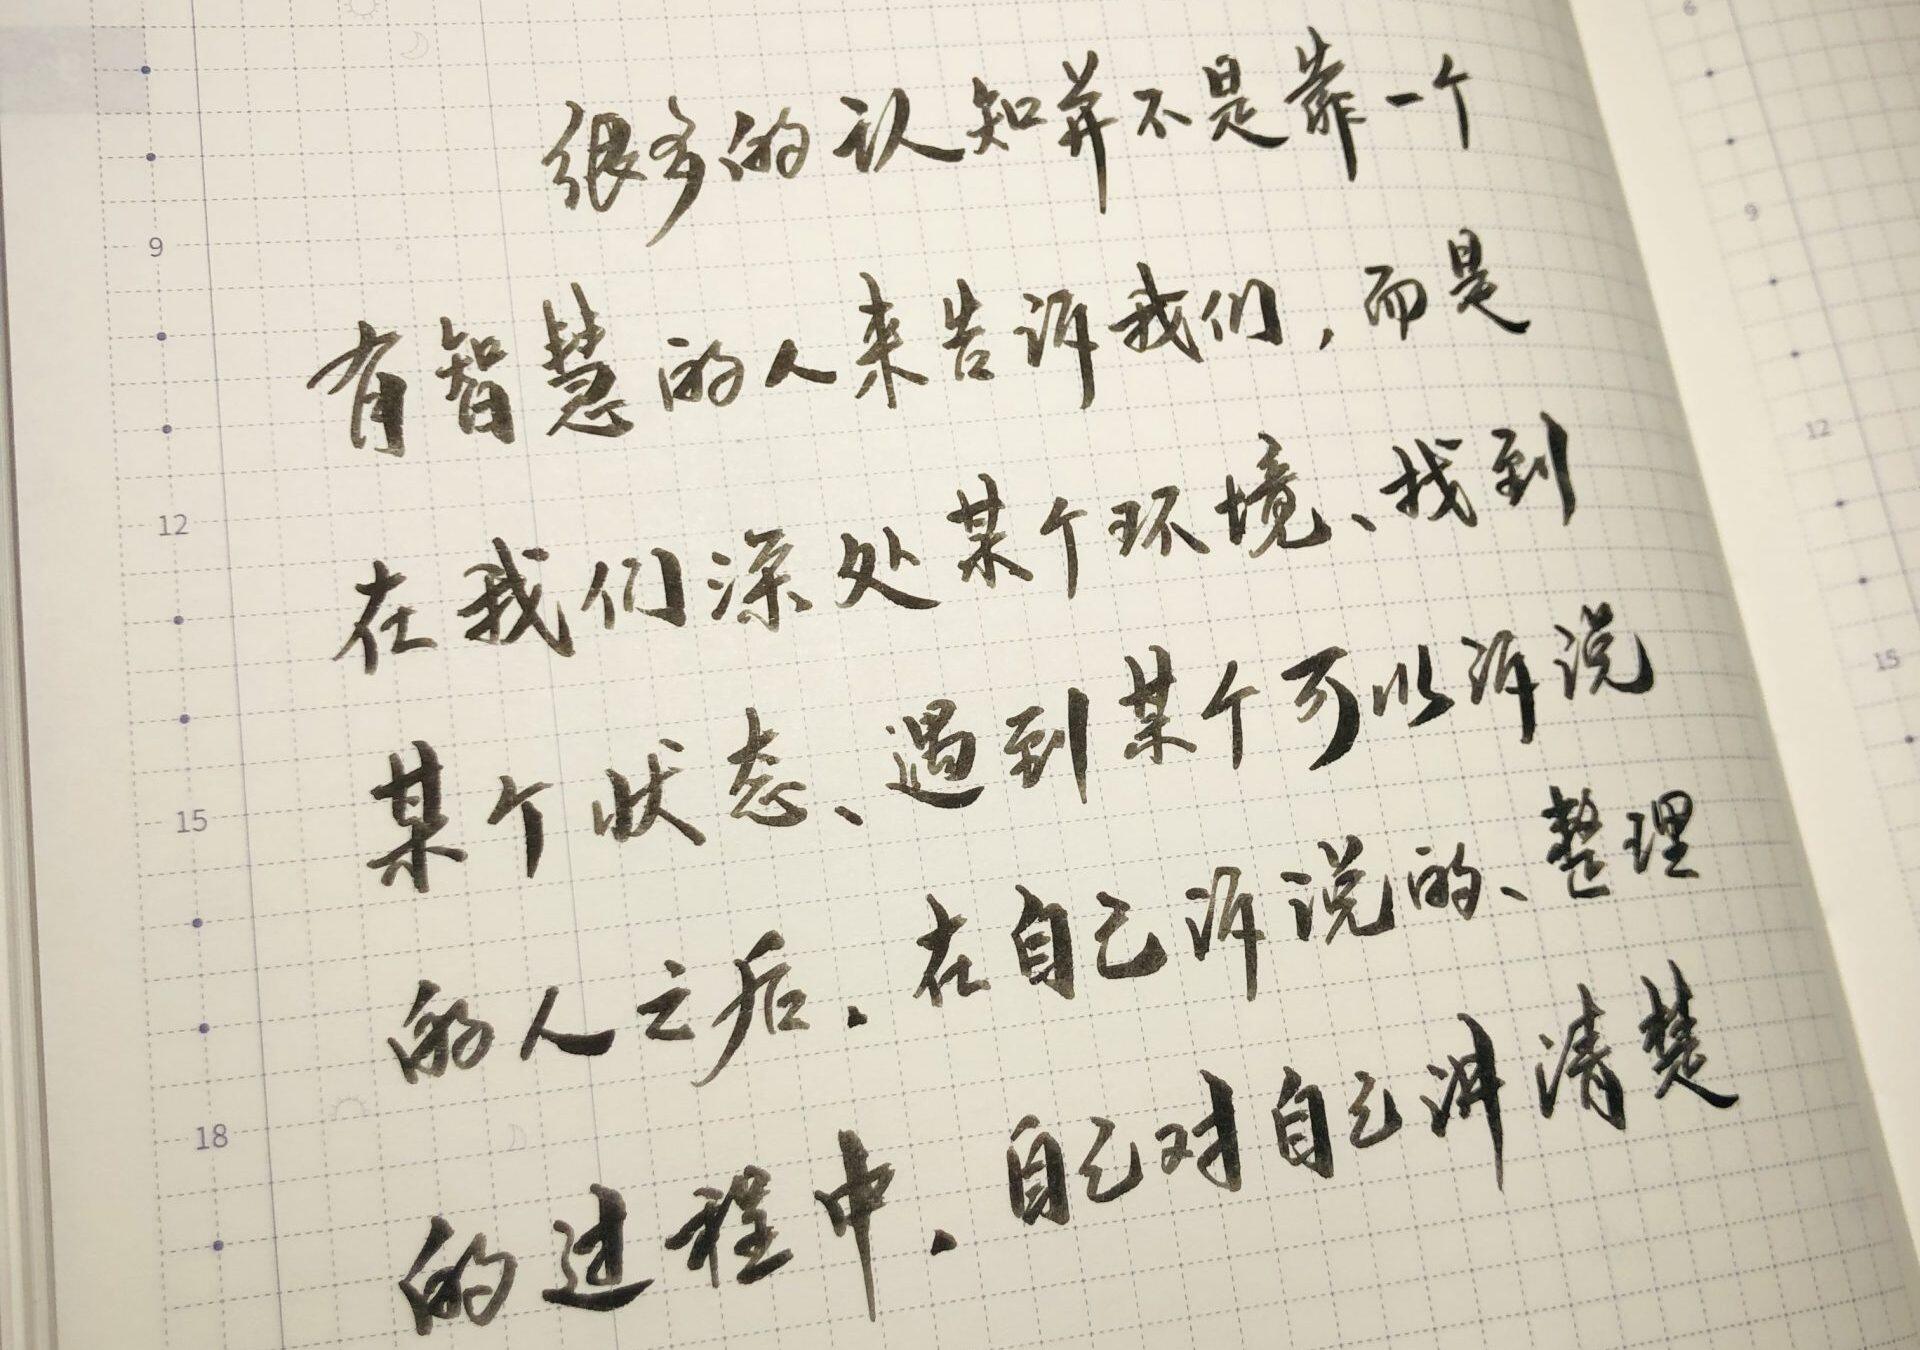 很多的认知并不是靠一个
有智慧的人来告诉我们，而是
在我们深处某个环境、找到
某个状态、遇到某个可以诉说
的人之后，在自己诉说的、整理
的过程中，自己对自己讲清楚
9
12
15
18
6
9
12
15